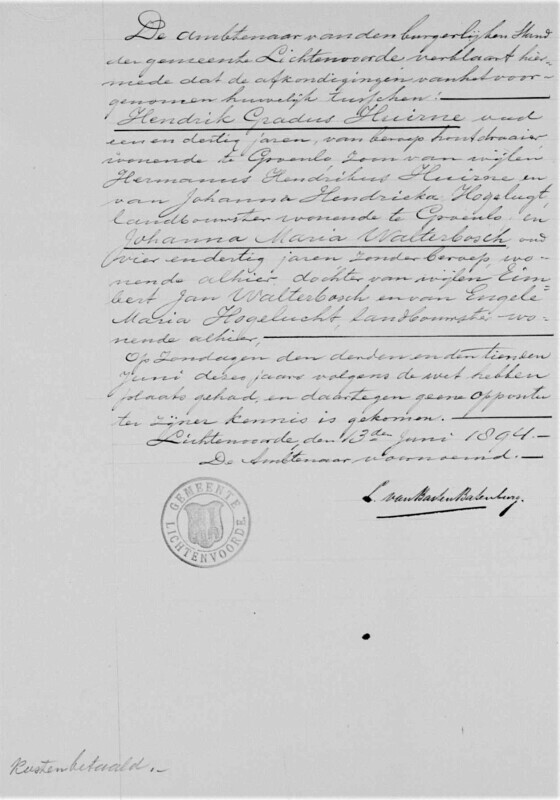 De Ambtenaar van den burgerlijken Stand
der gemeente Lichtenvoorde verklaart hier-
mede dat de afkondigingen van het voor-
genomen huwelijk tusschen:
Hendrik Gradus Huirne oud
een en dertig jaren, van beroep houtdraaier
wonende te Groenlo, zoon van wijlen
Hermanus Hendrikus Huirne en
van Johanna Hendrieka Hogelugt,
landbouwster wonende te Groenlo en
Johanna Maria Walterbosch, oud
vier en dertig jaren zonder beroep, wo-
nende alhier, dochter van wijlen Eim=
bert Jan Walterbosch en van Engele
Maria Hogelucht, landbouwster wo-
nende alhier,
Op Zondagen den derden en den tienden
Juni dezes jaars volgens de wet hebben
plaats gehad, en daartegen geene oppositie
ter zijner kennis is gekomen.
Lichtenvoorde, den 13den Juni 1894.
De Ambtenaar voornoemd.
L. van Basten Batenburg.
GEMEENTE
LICHTENVOORDE.
Kosten betaald.